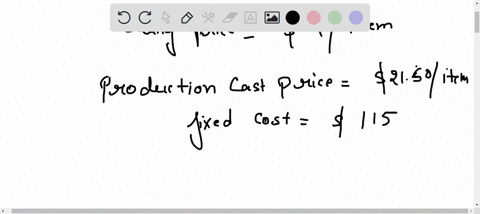 price = $ / item
Production Cast price = $21.50/item
fixed cost = $ 115